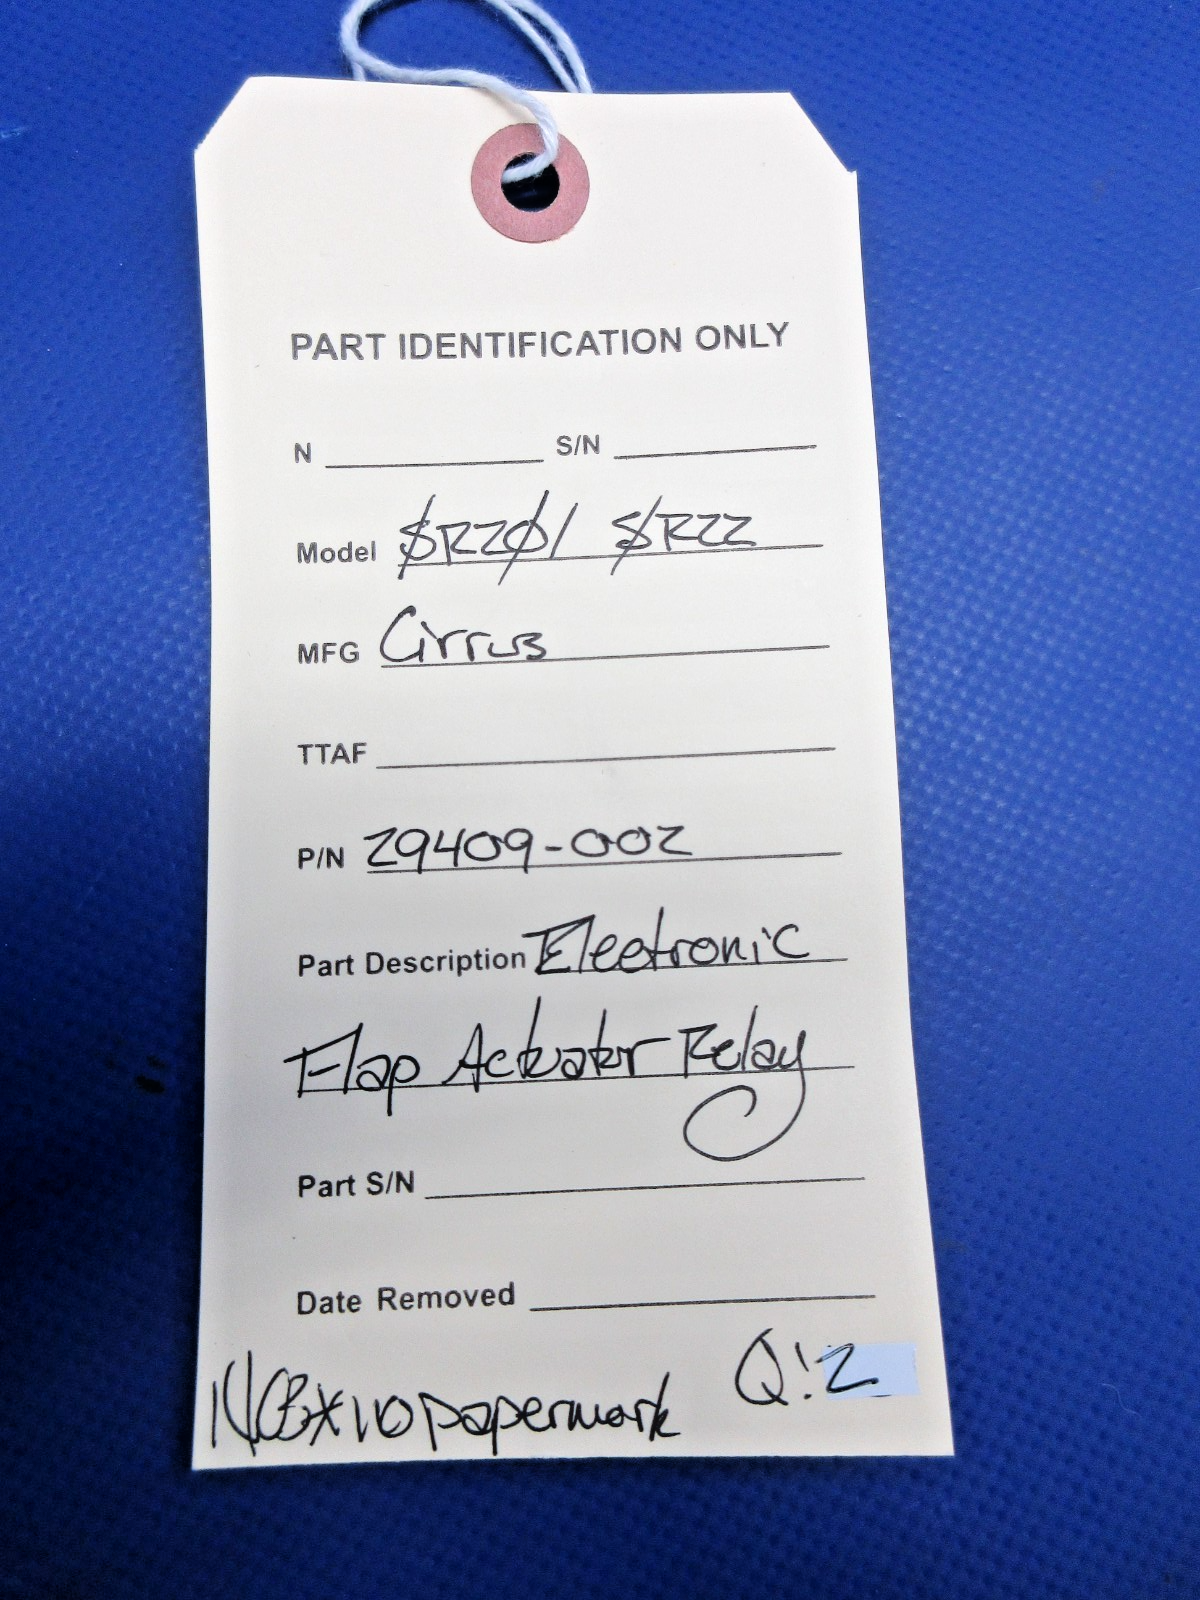 PART IDENTIFICATION ONLY
N S/N
Model SR20/ SR22
MFG Cirrus
TTAF
P/N 29409-002
Part Description Electronic
Flap Actuator Relay
Part S/N
Date Removed
papermark Q:2